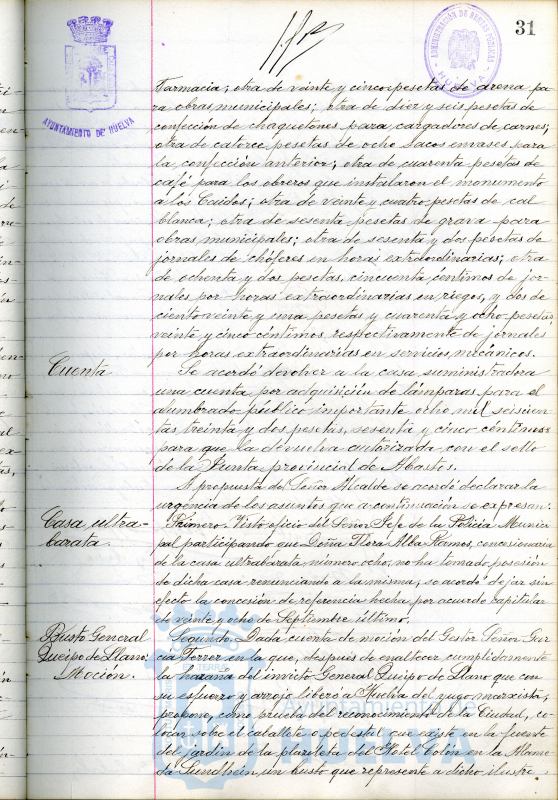 31
ADMINISTRACIÓN DE RENTAS PÚBLICAS
HUELVA
AYUNTAMIENTO DE HUELVA
Farmacia; otra de veinte y cinco pesetas de arena pa-
ra obras municipales; otra de diez y seis pesetas de
confección de chaquetones para cargadores de carnes;
otra de catorce pesetas de ocho sacos envases para
la confección anterior; otra de cuarenta pesetas de
café para los obreros que instalaron el monumento
a los Caidos; otra de veinte y cuatro pesetas de cal
blanca; otra de sesenta pesetas de grava para
obras municipales; otra de sesenta y dos pesetas de
jornales de chóferes en horas extraordinarias; otra
de ochenta y dos pesetas, cincuenta céntimos de jor-
nales por horas extraordinarias en riegos, y dos de
ciento veinte y una pesetas y cuarenta y ocho pesetas
veinte y cinco céntimos respectivamente de jornales
por horas extraordinarias en servicios mecánicos.
Cuenta
Se acordó devolver a la casa suministradora
una cuenta por adquisición de lámparas para el
alumbrado público importante ocho mil seiscien-
tas treinta y dos pesetas, sesenta y cinco céntimos
para que la devuelva autorizada con el sello
de la Junta provincial de Abastos.
A propuesta del Señor Alcalde se acordó declarar la
urgencia de los asuntos que a continuación se expresan:
Casa ultra-
barata.
Primero. Visto oficio del Señor Jefe de la Policia Munici
pal participando que Doña Flora Alba Ramos, concesionaria
de la casa ultrabarata número ocho, no ha tomado posesión
de dicha casa renunciando a la misma, se acordó dejar sin
efecto la concesión de referencia hecha por acuerdo capitular
de veinte y ocho de Septiembre último.
Busto General
Queipo de Llano:
Moción.
Segundo. Dada cuenta de moción del Gestor Señor Gar
cía Ferrer en la que, después de enaltecer cumplidamente
la hazaña del invicto General Queipo de Llano que con
su esfuerzo y arrojo liberó a Huelva del yugo marxista,
propone, como prueba del reconocimiento de la Ciudad, co-
locar sobre el caballete o pedestal que existe en la fuente
del jardín de la plazoleta del Hotel Colón en la Alame-
da Sundheim un busto que represente a dicho ilustre
Ayuntamiento de
HUELVA